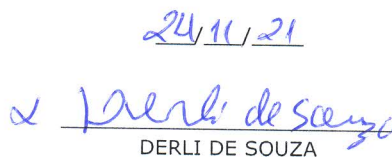 24/11/21
x Derli de Souza
DERLI DE SOUZA